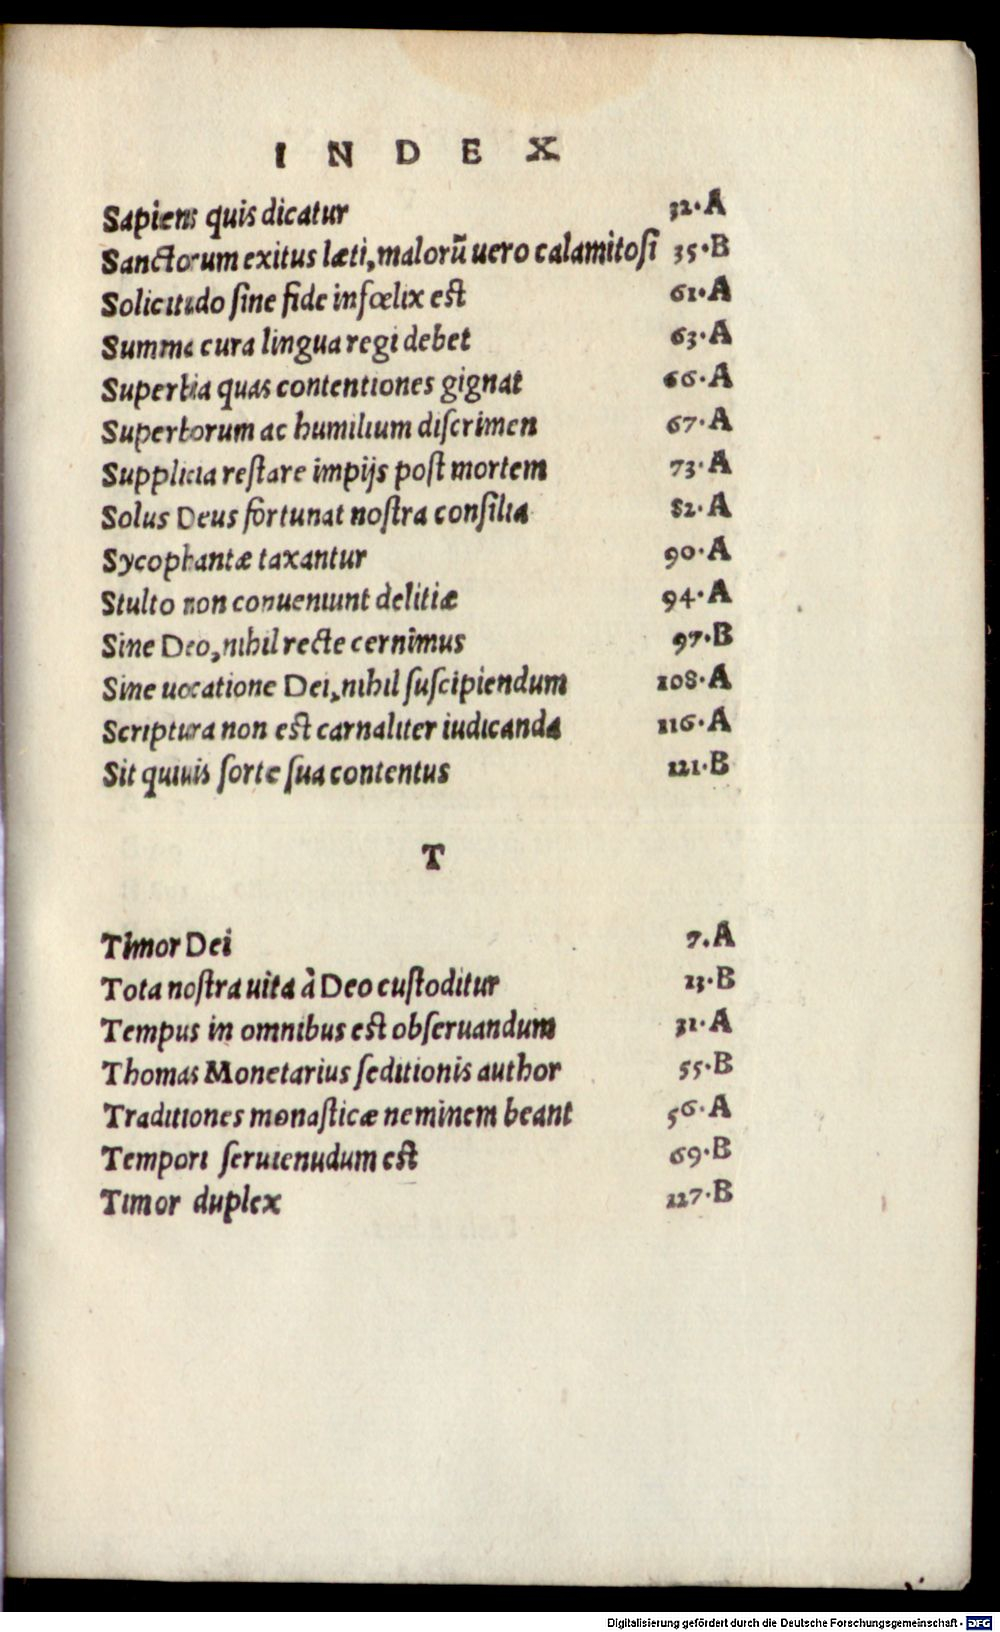 INDEX
Sapiens quis dicatur 32.A
Sanctorum exitus læti, malorũ uero calamitosi 35.B
Solicitudo sine fide infœlix est 61.A
Summa cura lingua regi debet 63.A
Superbia quas contentiones gignat 66.A
Superborum ac humilium discrimen 67.A
Supplicia restare impijs post mortem 73.A
Solus Deus fortunat nostra consilia 82.A
Sycophantæ taxantur 90.A
Stulto non conueniunt delitiæ 94.A
Sine Deo, nihil recte cernimus 97.B
Sine uocatione Dei, nihil suscipiendum 108.A
Scriptura non est carnaliter iudicanda 116.A
Sit quiuis sorte sua contentus 121.B
T
Timor Dei 7.A
Tota nostra uita à Deo custoditur 23.B
Tempus in omnibus est obseruandum 31.A
Thomas Monetarius seditionis author 55.B
Traditiones monasticæ neminem beant 56.A
Tempori seruienudum est 69.B
Timor duplex 127.B
Digitalisierung gefördert durch die Deutsche Forschungsgemeinschaft - DFG